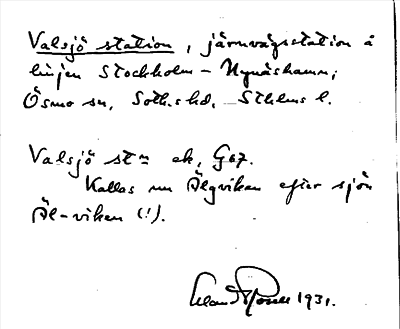 Valsjö station, järnvägsstation å
linjen Stockholm - Nynäshamn;
Ösmo sn, Soth.s hd, Sthlms l.
Valsjö stn ek, G67.
Kallas nu Älgviken efter sjön
Äl-viken (!).
1931.